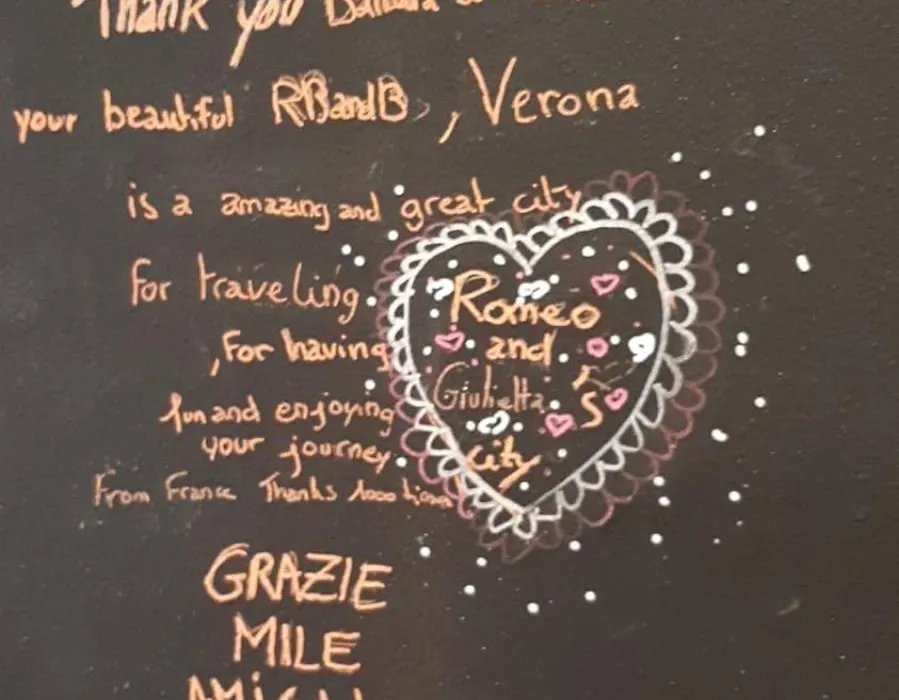 Thank you Barbara
your beautiful RBandB, Verona
is a amazing and great city
for traveling.
,for having
fun and enjoying
your journey.
From France Thanks 1000 times
Romeo
and
Giulietta's
city
GRAZIE
MILE